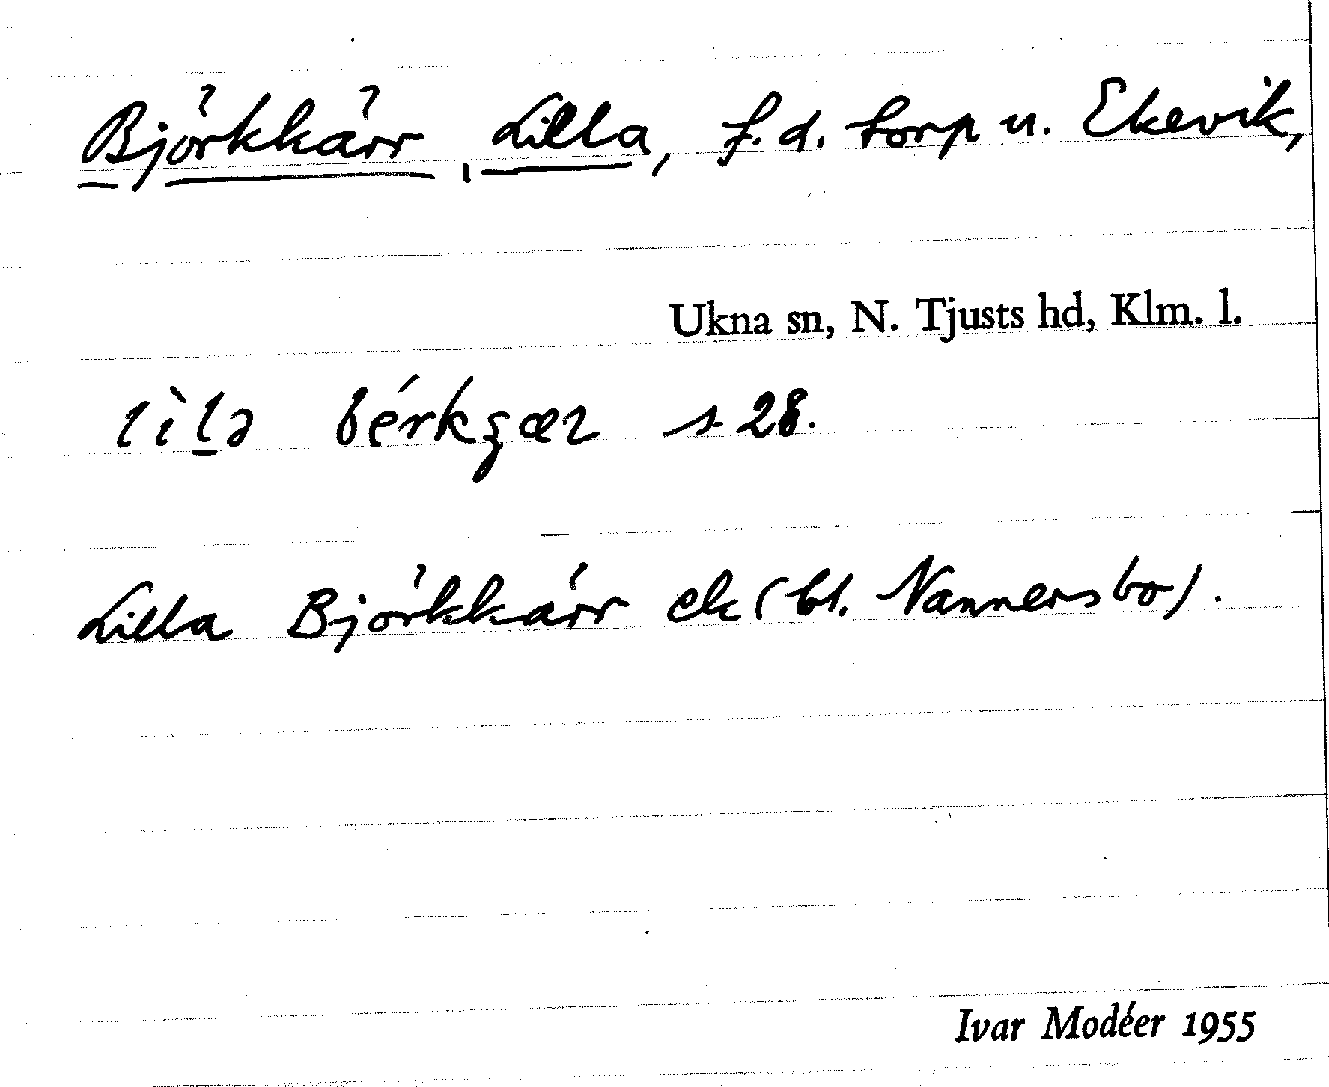 Björkkärr, Lilla, f.d. torp u. Ekevik,
Ukna sn, N. Tjusts hd, Klm. l.
s 28.
Lilla Björkkärr ek (bl. Nannersbo).
Ivar Modéer 1955